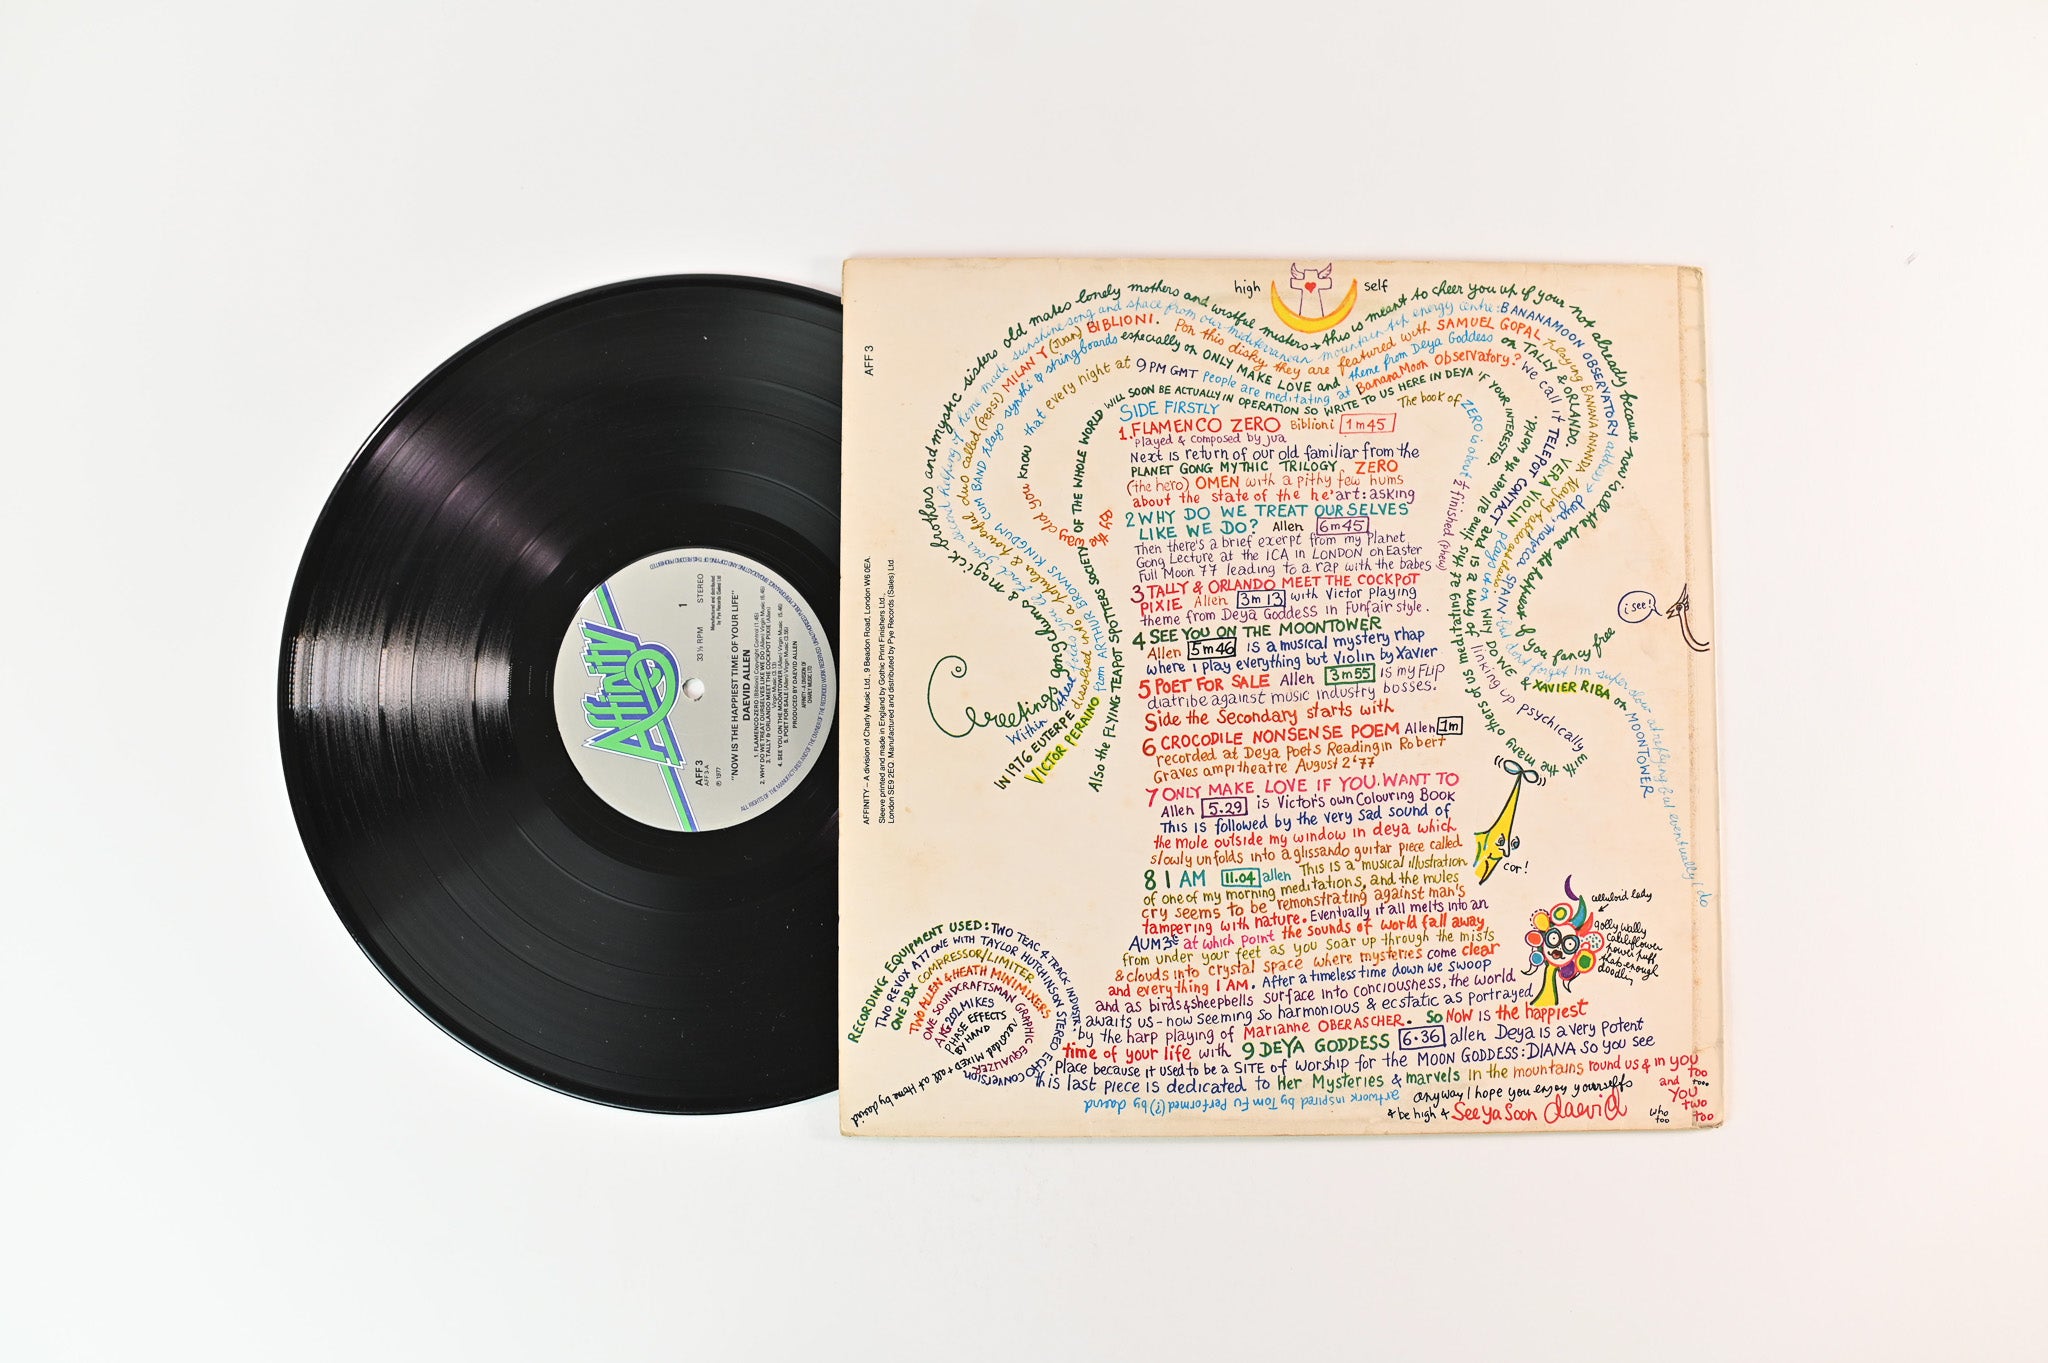 Affinity
AFF 3
AFF 3 A
℗ 1977
"NOW IS THE HAPPIEST TIME OF YOUR LIFE"
DAEVID ALLEN
1. FLAMENCO ZERO
2. WHY DO WE TREAT OURSELVES LIKE WE DO
3. TALLY & ORLANDO MEET THE COCKPOT PIXIE
4. SEE YOU ON THE MOONTOWER
5. POET FOR SALE
PRODUCED BY DAEVID ALLEN
33 ⅓ RPM
STEREO
1
AFF 3
AFFINITY – A division of Charly Music Ltd., 9 Beadon Road, London W6 0EA.
Sleeve printed and made in England by Gothic Print Finishers Ltd.,
London SE9 2EQ. Manufactured and distributed by Pye Records (Sales) Ltd.
high self
Greetings gongchums & magick brothers and mystic sisters old mates lonely mothers and wistful misters → this is meant to cheer you up if your not already because now is all the time the happiest if you fancy free
BANANAMOON OBSERVATORY address → deya, majorca, SPAIN
IN 1976 EUTERPE dissolved into
VICTOR PERAINO from ARTHUR BROWN'S KINGDUM CUM BAND plays synthi & stringboards especially on ONLY MAKE LOVE and theme from Deya Goddess on TALLY & ORLANDO.
BIBLIONI. Pon this disky they are featured with SAMUEL GOPAL
By the way did you know that every night at 9 PM GMT people are meditating at BananaMoon Observatory? We call it TELEPOT CONTACT and is a way of linking up psychically with the many others of us meditators
Also the FLYING TEAPOT SPOTTERS SOCIETY OF THE WHOLE WORLD WILL SOON BE ACTUALLY IN OPERATION SO WRITE TO US HERE IN DEYA IF YOUR INTERESTED.
The book of ZERO is about ½ finished (phew)
XAVIER RIBA on MOONTOWER
SIDE FIRSTLY
1. FLAMENCO ZERO Biblioni 1m45
Played & composed by jua
Next is return of our old familiar from the
PLANET GONG MYTHIC TRILOGY ZERO
(the hero) OMEN with a pithy few hums
about the state of the he'art: asking
2 WHY DO WE TREAT OURSELVES
LIKE WE DO? Allen 6m45
Then there's a brief exerpt from my Planet
Gong Lecture at the ICA in LONDON on Easter
Full Moon 77 leading to a rap with the babes
3 TALLY & ORLANDO MEET THE COCKPOT
PIXIE Allen 3m13 with Victor playing
theme from Deya Goddess in Funfair style.
4 SEE YOU ON THE MOONTOWER
Allen 5m46 is a musical mystery rhap
where i play everything but Violin by Xavier
5 POET FOR SALE Allen 3m55 is my FLIP
diatribe against music industry bosses.
Side the Secondary starts with
6 CROCODILE NONSENSE POEM Allen 1m
recorded at Deya Poets Reading in Robert
Graves ampitheatre August 2 '77
7 ONLY MAKE LOVE IF YOU WANT TO
Allen 5.29 is Victor's own Colouring Book
This is followed by the very sad sound of
the mule outside my window in deya which
slowly unfolds into a glissando guitar piece called
8 I AM 11.04 allen This is a musical illustration
of one of my morning meditations, and the mules
cry seems to be remonstrating against man's
tampering with nature. Eventually it all melts into an
AUM at which point the sounds of world fall away
from under your feet as you soar up through the mists
& clouds into crystal space where mysteries come clear
and everything I AM. After a timeless time down we swoop
and as birds & sheepbells surface into conciousness, the world
awaits us – now seeming so harmonious & ecstatic as portrayed
by the harp playing of Marianne OBERASCHER. So NOW is the happiest
time of your life with 9 DEYA GODDESS 6.36 allen Deya is a very potent
Place because it used to be a SITE of worship for the MOON GODDESS: DIANA so you see
this last piece is dedicated to Her Mysteries & marvels in the mountains round us & in you too
artwork inspired by Tom Fu Performed (?) by daevid
anyway I hope you enjoy yourselfs
and YOU two too
& be high & See Ya Soon daevid
who too
i see!
cor!
celluloid lady
golly wally
cauliflower
power puff
doodly
RECORDING EQUIPMENT USED: TWO TEAC 4 TRACK INDUSTR.
TWO REVOX A77 ONE WITH TAYLOR HUTCHINSON STEREO ECHO CONVERSION
ONE DBX COMPRESSOR/LIMITER
TWO ALLEN & HEATH MINIMIXERS
ONE SOUNDCRAFTSMAN GRAPHIC EQUALIZER
AKG 202 MIKES
PHASE EFFECTS
BY HAND
recorded mixed & all at Home by daevid